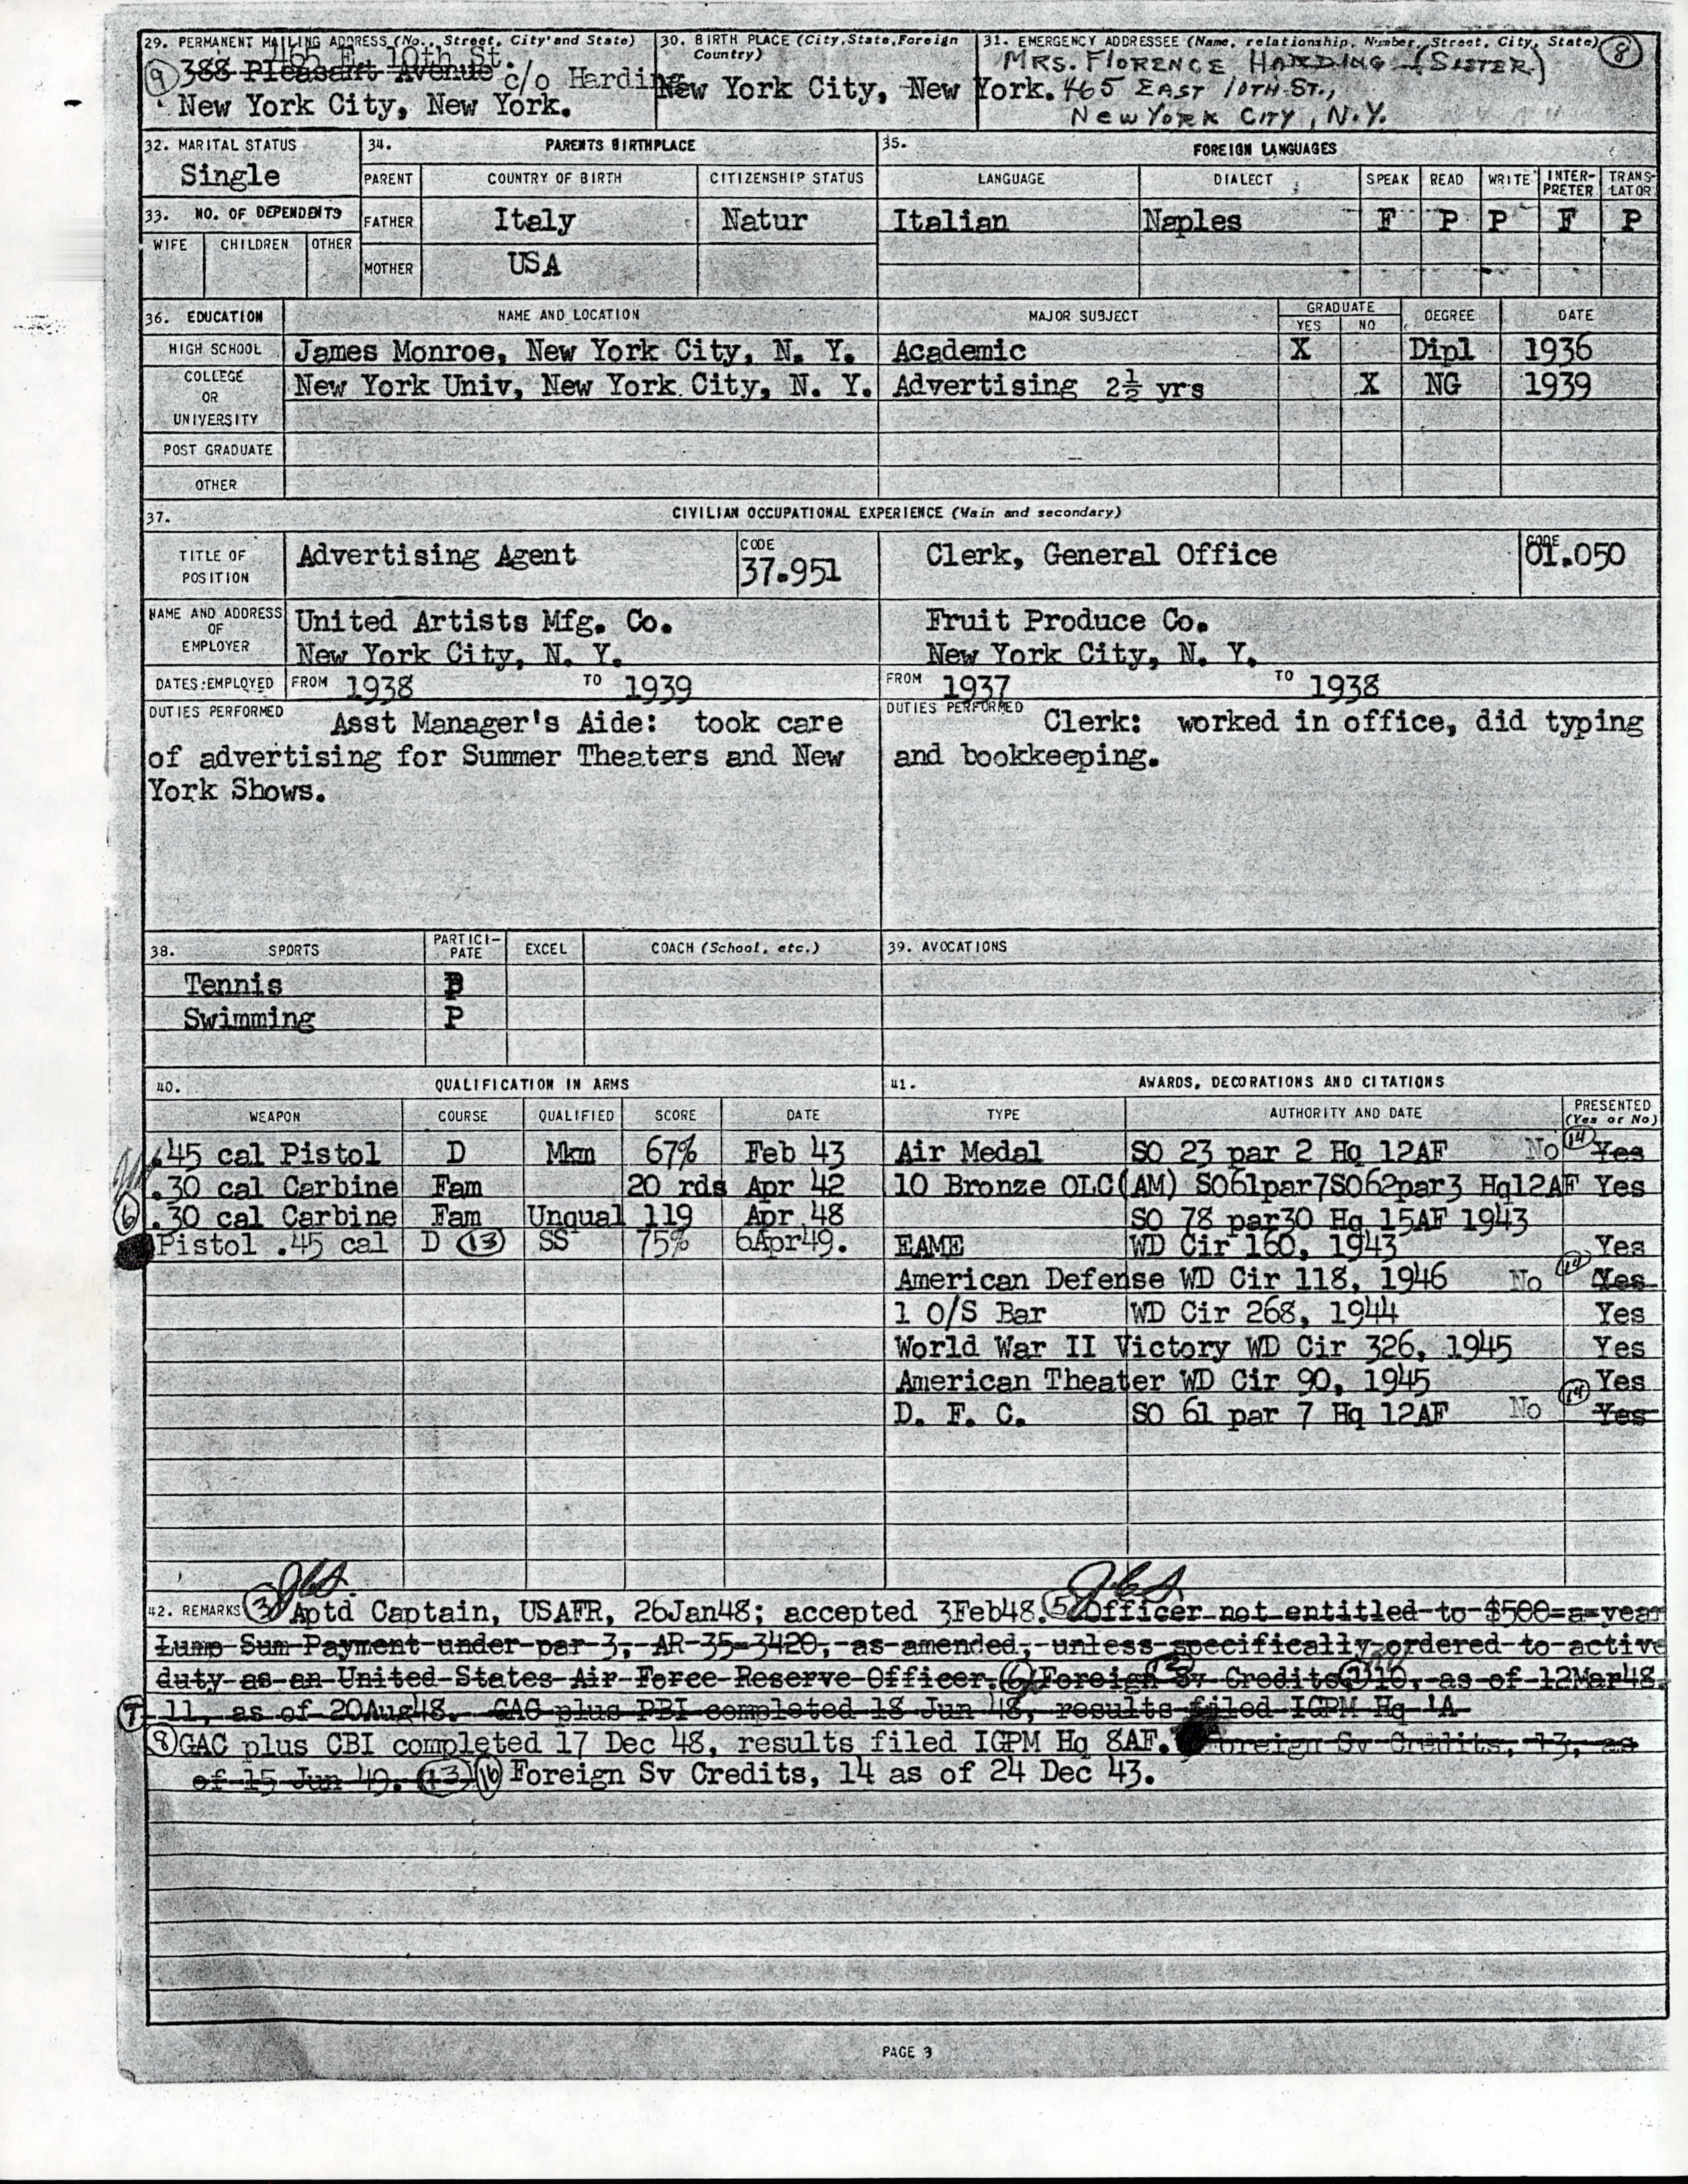 29. PERMANENT MAILING ADDRESS (No., Street, City and State)
465 E. 10th St.
388 Pleasant Avenue c/o Harding
New York City, New York.
9
30. BIRTH PLACE (City, State, Foreign Country)
New York City, New York.
31. EMERGENCY ADDRESSEE (Name, relationship, Number, Street, City, State)
8
MRS. FLORENCE HARDING (SISTER)
465 EAST 10TH ST.,
NEW YORK CITY, N.Y.
32. MARITAL STATUS
Single
33. NO. OF DEPENDENTS
WIFE CHILDREN OTHER
34. PARENTS BIRTHPLACE
PARENT COUNTRY OF BIRTH CITIZENSHIP STATUS
FATHER Italy Natur
MOTHER USA
35. FOREIGN LANGUAGES
LANGUAGE DIALECT SPEAK READ WRITE INTER-PRETER TRANS-LATOR
Italian Naples F P P F P
36. EDUCATION NAME AND LOCATION MAJOR SUBJECT GRADUATE YES NO DEGREE DATE
HIGH SCHOOL James Monroe, New York City, N. Y. Academic X Dipl 1936
COLLEGE OR UNIVERSITY New York Univ, New York City, N. Y. Advertising 2½ yrs X NG 1939
POST GRADUATE
OTHER
37. CIVILIAN OCCUPATIONAL EXPERIENCE (Main and secondary)
TITLE OF POSITION Advertising Agent CODE 37.951 Clerk, General Office CODE 01.050
NAME AND ADDRESS OF EMPLOYER
United Artists Mfg. Co. Fruit Produce Co.
New York City, N. Y. New York City, N. Y.
DATES EMPLOYED FROM 1938 TO 1939 FROM 1937 TO 1938
DUTIES PERFORMED Asst Manager's Aide: took care
of advertising for Summer Theaters and New
York Shows.
DUTIES PERFORMED Clerk: worked in office, did typing
and bookkeeping.
38. SPORTS PARTICI-PATE EXCEL COACH (School, etc.) 39. AVOCATIONS
Tennis P
Swimming P
40. QUALIFICATION IN ARMS
WEAPON COURSE QUALIFIED SCORE DATE
.45 cal Pistol D Mkm 67% Feb 43
.30 cal Carbine Fam 20 rds Apr 42
6 .30 cal Carbine Fam Unqual 119 Apr 48
Pistol .45 cal D 13 SS 75% 6Apr49.
41. AWARDS, DECORATIONS AND CITATIONS
TYPE AUTHORITY AND DATE PRESENTED (Yes or No)
Air Medal SO 23 par 2 Hq 12AF No 14 Yes
10 Bronze OLC(AM) SO61par7SO62par3 Hq12AF Yes
SO 78 par30 Hq 15AF 1943
EAME WD Cir 160, 1943 Yes
American Defense WD Cir 118, 1946 No 14 Yes
1 O/S Bar WD Cir 268, 1944 Yes
World War II Victory WD Cir 326, 1945 Yes
American Theater WD Cir 90, 1945 Yes
D. F. C. SO 61 par 7 Hq 12AF No 14 Yes
42. REMARKS 3 Aptd Captain, USAFR, 26Jan48; accepted 3Feb48. 5 Officer not entitled to $500-a-year
Lump Sum Payment under par 3, AR 35-3420, as amended, unless specifically ordered to active
duty as an United States Air Force Reserve Officer. 6 Foreign Sv Credits 10, as of 12Mar48.
7 11, as of 20Aug48. GAC plus PBI completed 18 Jun 48, results filed IGPM Hq
8 GAC plus CBI completed 17 Dec 48, results filed IGPM Hq 8AF. Foreign Sv Credits, 13, as
of 15 Jun 49. 13 Foreign Sv Credits, 14 as of 24 Dec 43.
PAGE 3